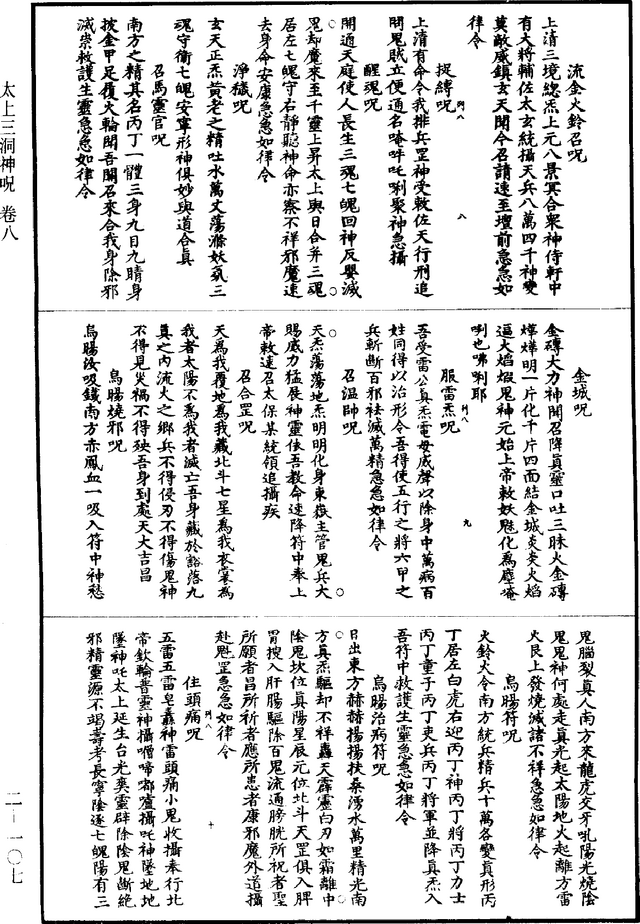 太上三洞神呪　卷八
二－一〇七
流金火鈴召呪
上清三境總炁上元八景冥合衆神侍軒中
有大將輔佐太玄統攝天兵八萬四千神變
莫敵威鎮玄天聞今召請速至壇前急急如
律令
捉縛呪
上清有命令我排兵罡神受敕佐天行刑追
問鬼賊立便通名唵吽吒唎聚神急攝
醒魂呪
開通天庭使人長生三魂七魄回神反嬰滅
鬼却魔來至千靈上昇太上與日合并三魂
居左七魄守右靜聽神命亦察不祥邪魔速
去身命安康急急如律令
淨穢呪
玄天正炁黃老之精吐水萬丈蕩滌妖氛三
魂守衛七魄安寧形神俱妙與道合真
召馬靈官呪
南方之精其名丙丁一體三身九目九睛身
披金甲足履火輪聞吾關召來合我身除邪
滅祟救護生靈急急如律令
金城呪
金磚大力神聞召降真靈口吐三昧火金磚
燁燁明一片化千片四面結金城炎炎火焰
逼火焰煅鬼神元始上帝敕妖魁化爲塵唵
唎也咈唎耶
服雷炁呪
吾受雷公真炁電母威聲以除身中萬病百
姓同得以治形令吾得使五行之將六甲之
兵斬斷百邪袪滅萬精急急如律令
召溫帥呪
天炁蕩蕩地炁明明化身東嶽主管鬼兵大
賜威力猛展神靈依吾教命速降符中奉上
帝敕速召太保某統領追攝疾
召合罡呪
天爲我覆地爲我藏北斗七星爲我衣裳爲
我者太陽不爲我者滅亡吾身藏於豁落九
真之內流火之鄉兵不得侵刃不得傷鬼神
不得見災禍不得殃吾身到處天大吉昌
烏暘燒邪呪
烏暘汝吸鐵南方赤鳳血一吸入符中神愁
鬼腦裂真人南方來龍虎交牙吼陽光燒陰
鬼鬼神何處走真光起太陽地火起離方雷
火艮上發燒滅諸不祥急急如律令
烏暘符呪
火鈴火令南方統兵精兵十萬各變真形丙
丁居左白虎右迎丙丁神丙丁將丙丁力士
丙丁童子丙丁吏兵丙丁將軍並降真炁入
吾符中救護生靈急急如律令
烏暘治病符呪
日出東方赫赫揚揚扶桑湧水萬里精光南
方真炁驅却不祥轟天霹靂白刃如霜離中
陰鬼坎位真陽星辰元位北斗天罡俱入脾
胃搜入肝腸驅除百鬼流通膀胱所祝者聖
所願者昌所祈者應所患者康邪魔外道攝
赴魁罡急急如律令
住頭痛呪
五雷五雷皂纛神雷頭痛小鬼收攝奉行北
帝欽輪普靈神攝㗸啼嘟盧攝吒神墜地地
墜神吒太上延生台光奭靈辟除陰鬼斷絕
邪精靈源不竭壽考長寧陰逐七魄陽有三